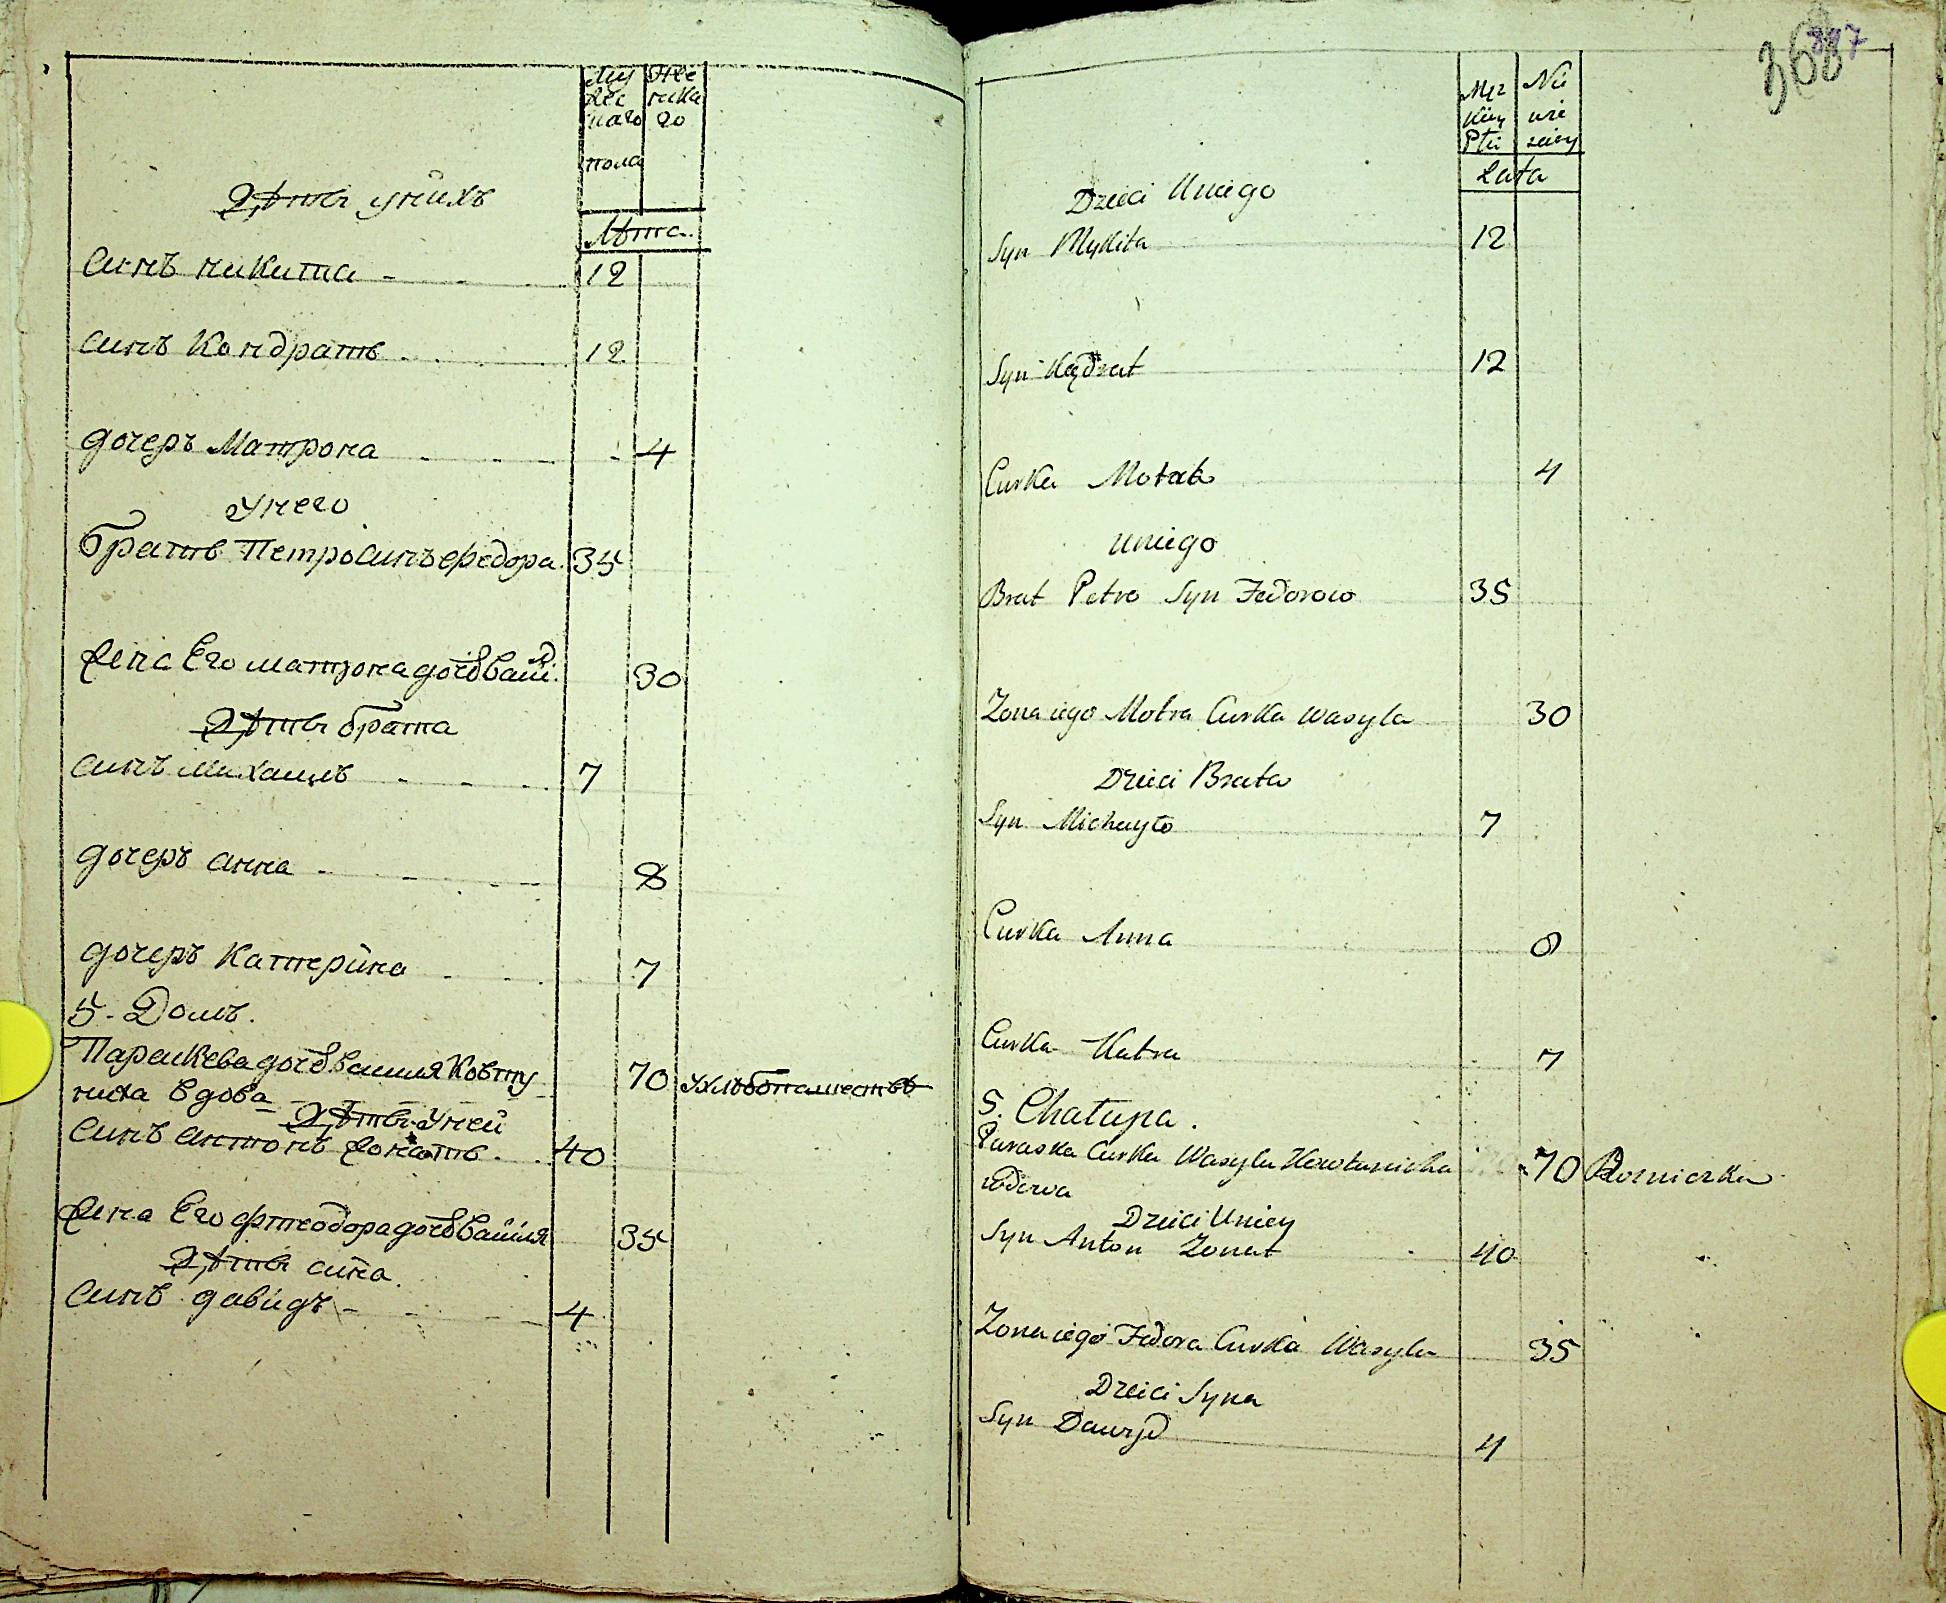 Му Же
жес нска
каго го
пола
Дѣти у нихъ
Лѣта.
синъ никита 12
синъ Кондратъ 12
дочеръ Матрона 4
У него
братъ Петро синъ федора 35
жена Его матрона дочь васил. 30
Дѣти брата
синъ михаилъ 7
дочеръ анна 8
дочеръ Катерина 7
5. Домъ.
Параскева дочь василя Ковту
ниха вдова 70 у хлѣбопашествѣ
Дѣти у ней
Синъ антонъ жонатъ 40
жена Его фтеодора дочь василя 35
Дѣти сина
Синъ давидъ 4
368 887
Męz Nie
kiey wie
Płci sciey
Lata
Dzieci U niego
Syn Mykita 12
Syn Kądrat 12
Curka Motrka 4
u niego
Brat Petro Syn Fedorow 35
Zona iego Motra Curka wasyla 30
Dzieci Brata
Syn Michayło 7
Curka Anna 8
Curka Katra 7
5. Chałupa.
Paraska Curka Wasyla Kowtunicha 70 Rolniczka
wdowa
Dzieci U niey
Syn Anton Zonat 40
Zona iego Fedora Curka Wasyla 35
Dzieci Syna
Syn Dawyd 4